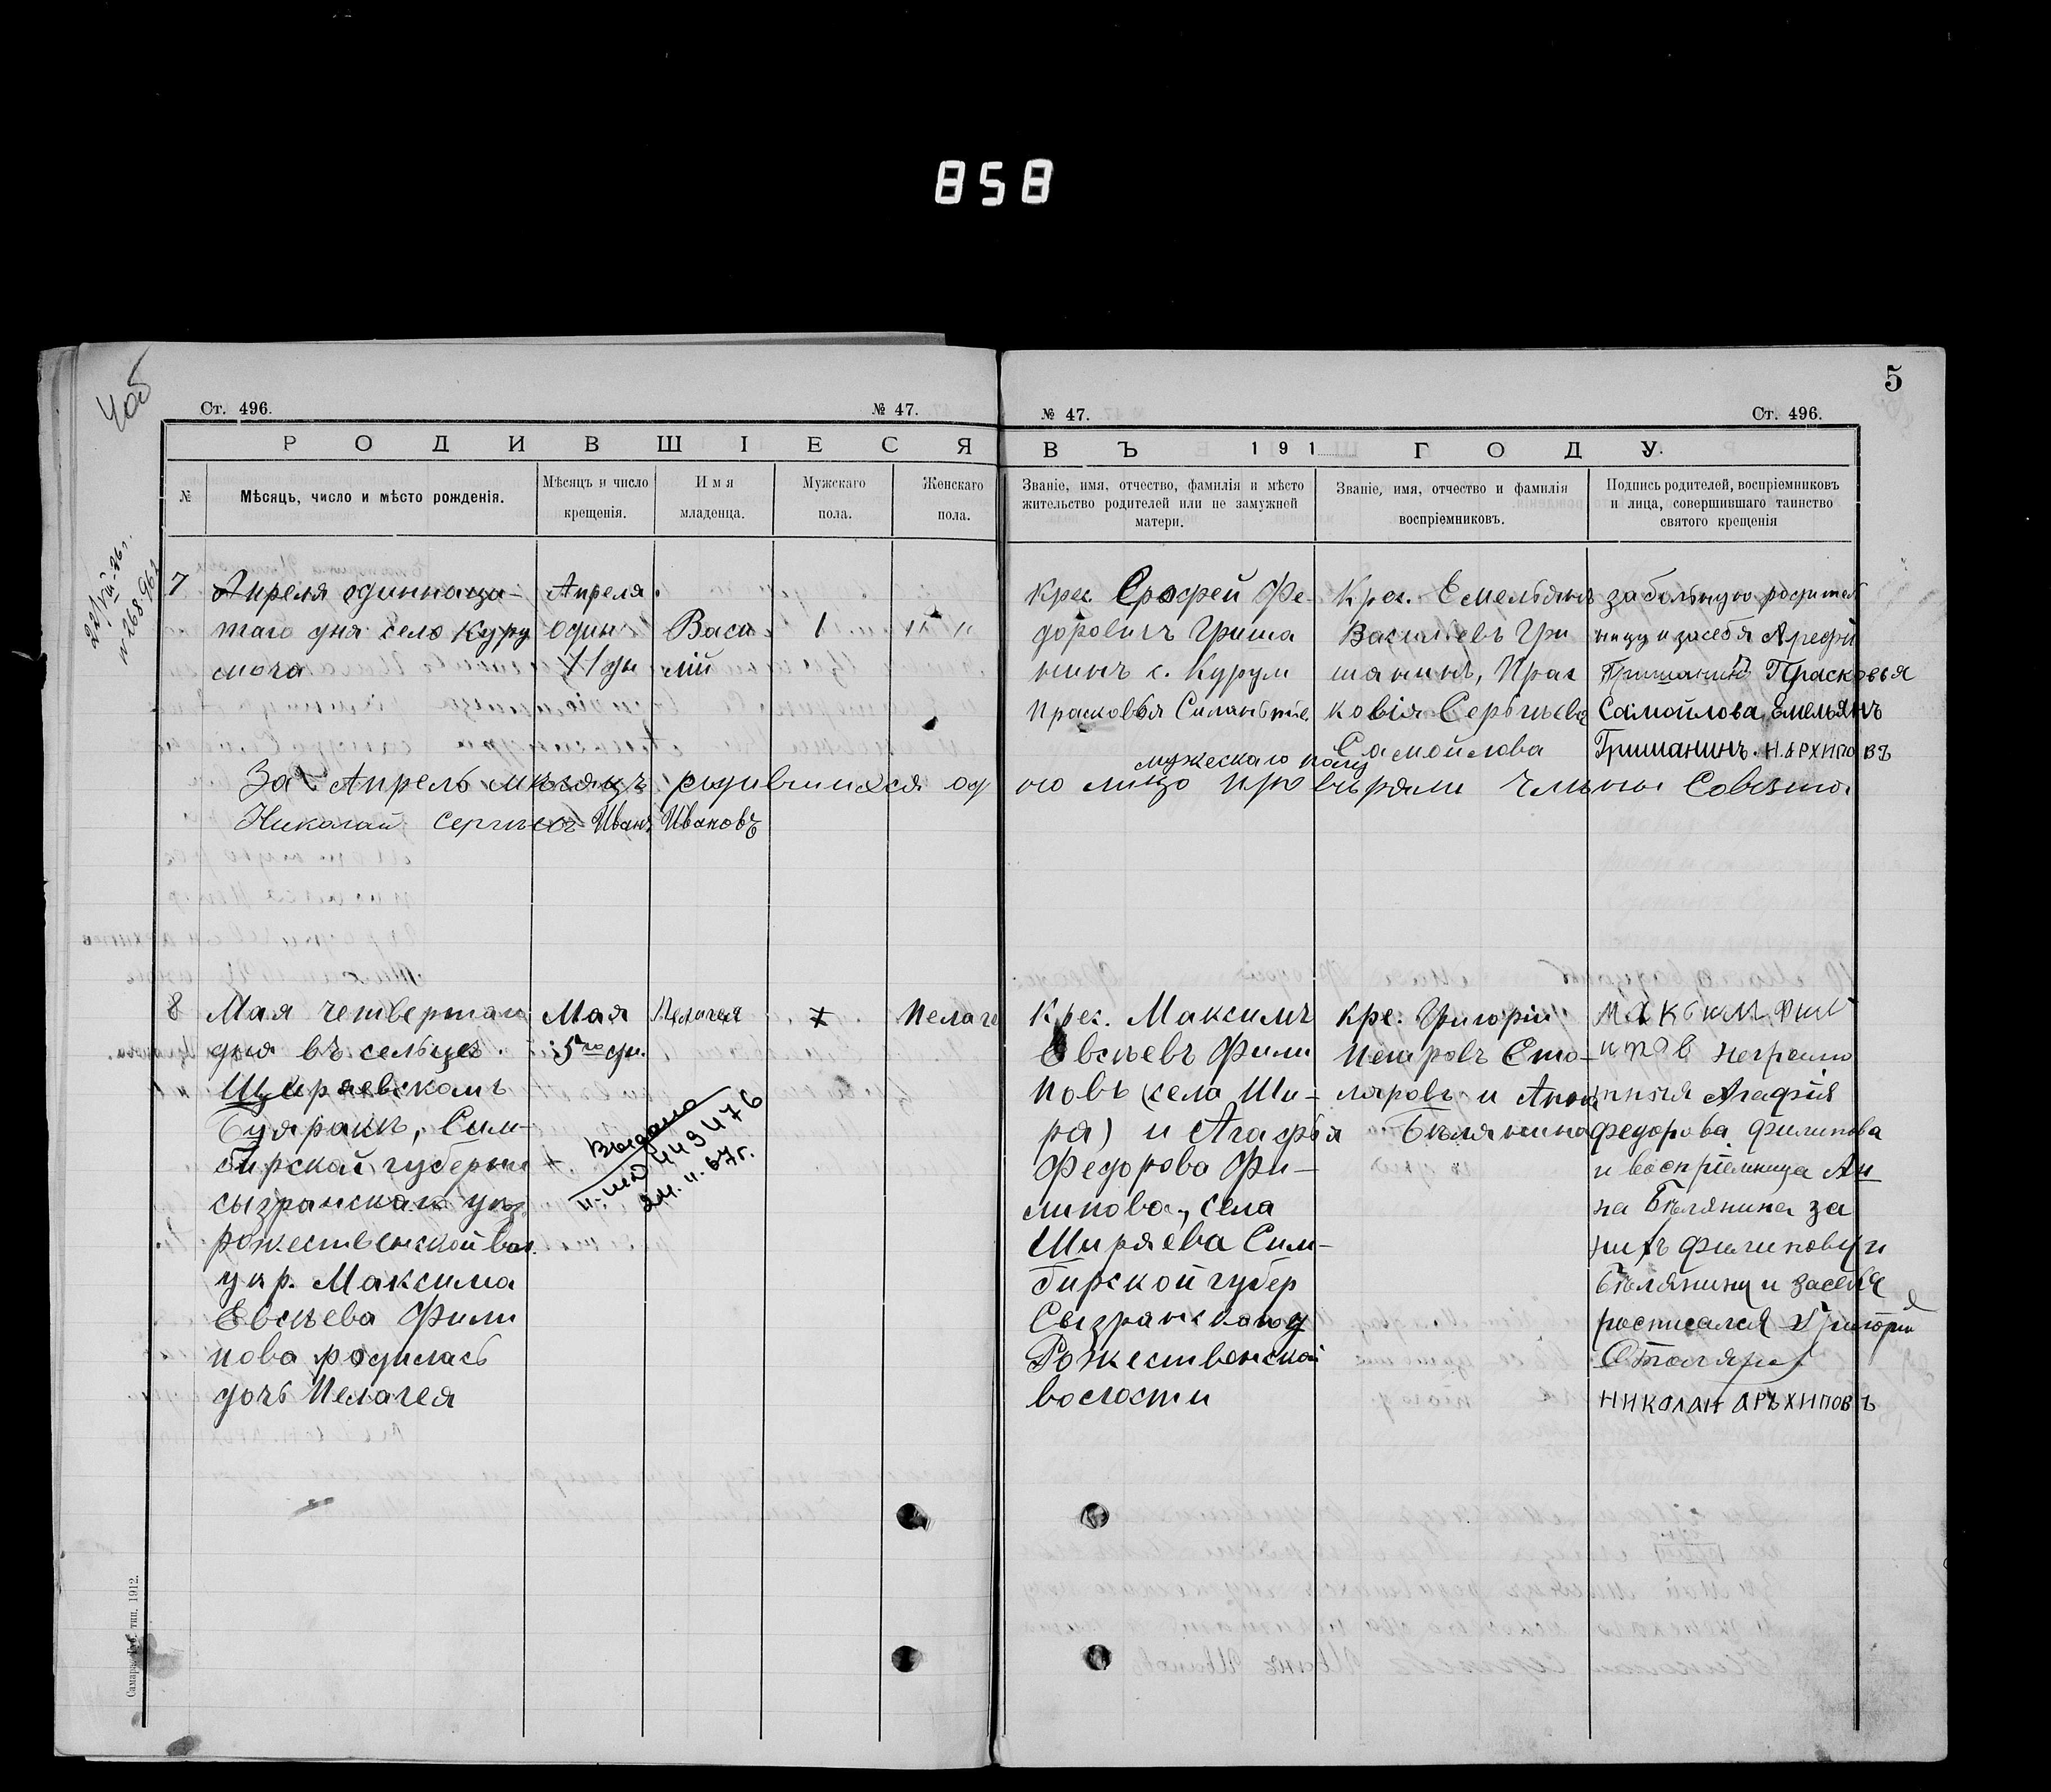 858
4об
5
Ст. 496.
№ 47.
№ 47.
Ст. 496.
РОДИВШІЕСЯ
ВЪ 191 ГОДУ.
№
Мѣсяцъ, число и мѣсто рожденія.
Мѣсяцъ и число
крещенія.
Имя
младенца.
Мужскаго
пола.
Женскаго
пола.
Званіе, имя, отчество, фамилія и мѣсто
жительство родителей или не замужней
матери.
Званіе, имя, отчество и фамилія
воспріемниковъ.
Подпись родителей, воспріемниковъ
и лица, совершившаго таинство
святого крещенія
22/VIII-36 г.
№ 268962
7
Апреля одиннаца-
таго дня село Куру
моча
Апреля
один
11 дн
Васи
лій
1
" "
Крес. Ерофей Фе-
доровичъ Гриша
нинъ с. Курум
Прасковья Силантье.
Крес. Емельянъ
Васильевъ Гри
шанинъ, Прас
ковія Сергѣева
Самойлова
за больную родитель
ницу и засебя Арефи
Гришанинъ Прасковья
Самойлова, Емельянъ
Гришанинъ. Н. АРХИПОВЪ
мужескаго полу
За Апрель мѣсяцъ родившихся од но лицо провѣряли члены Совета
Николай Сергѣевъ Иванъ Ивановъ
8
Мая четвертаго
дня въ сельце
Ширяевскомъ
Буяракъ, Сим-
бирской губерни
сызранскаго уѣз
рожественской вол.
у кр. Максима
Евсѣева Фили
пова родилась
дочь Пелагея
Мая
5го дн.
Пелагея
Пелаге
Выдано
443476
67г.
Крес. Максимъ
Евсѣевъ Фили
повъ (села Ши-
ря) и Агафья
Федорова Фи-
липова, села
Ширяева Сим-
бирской губер
Сызранскаго у
Рожественской
волости
Кре. Григорій
Петровъ Сто-
ляровъ и Анна
Бѣлянина
МАКСИМ Фил
ипов неграмо
тная Агафія
федорова филипова
и воспріемница Ан
на Бѣлянина за
нихъ филипову и
Бѣлянину и засебя
росписался Григорій
Столяров
НИКОЛАЙ АРЪХИПОВЪ
Самара, Губ. тип. 1912.